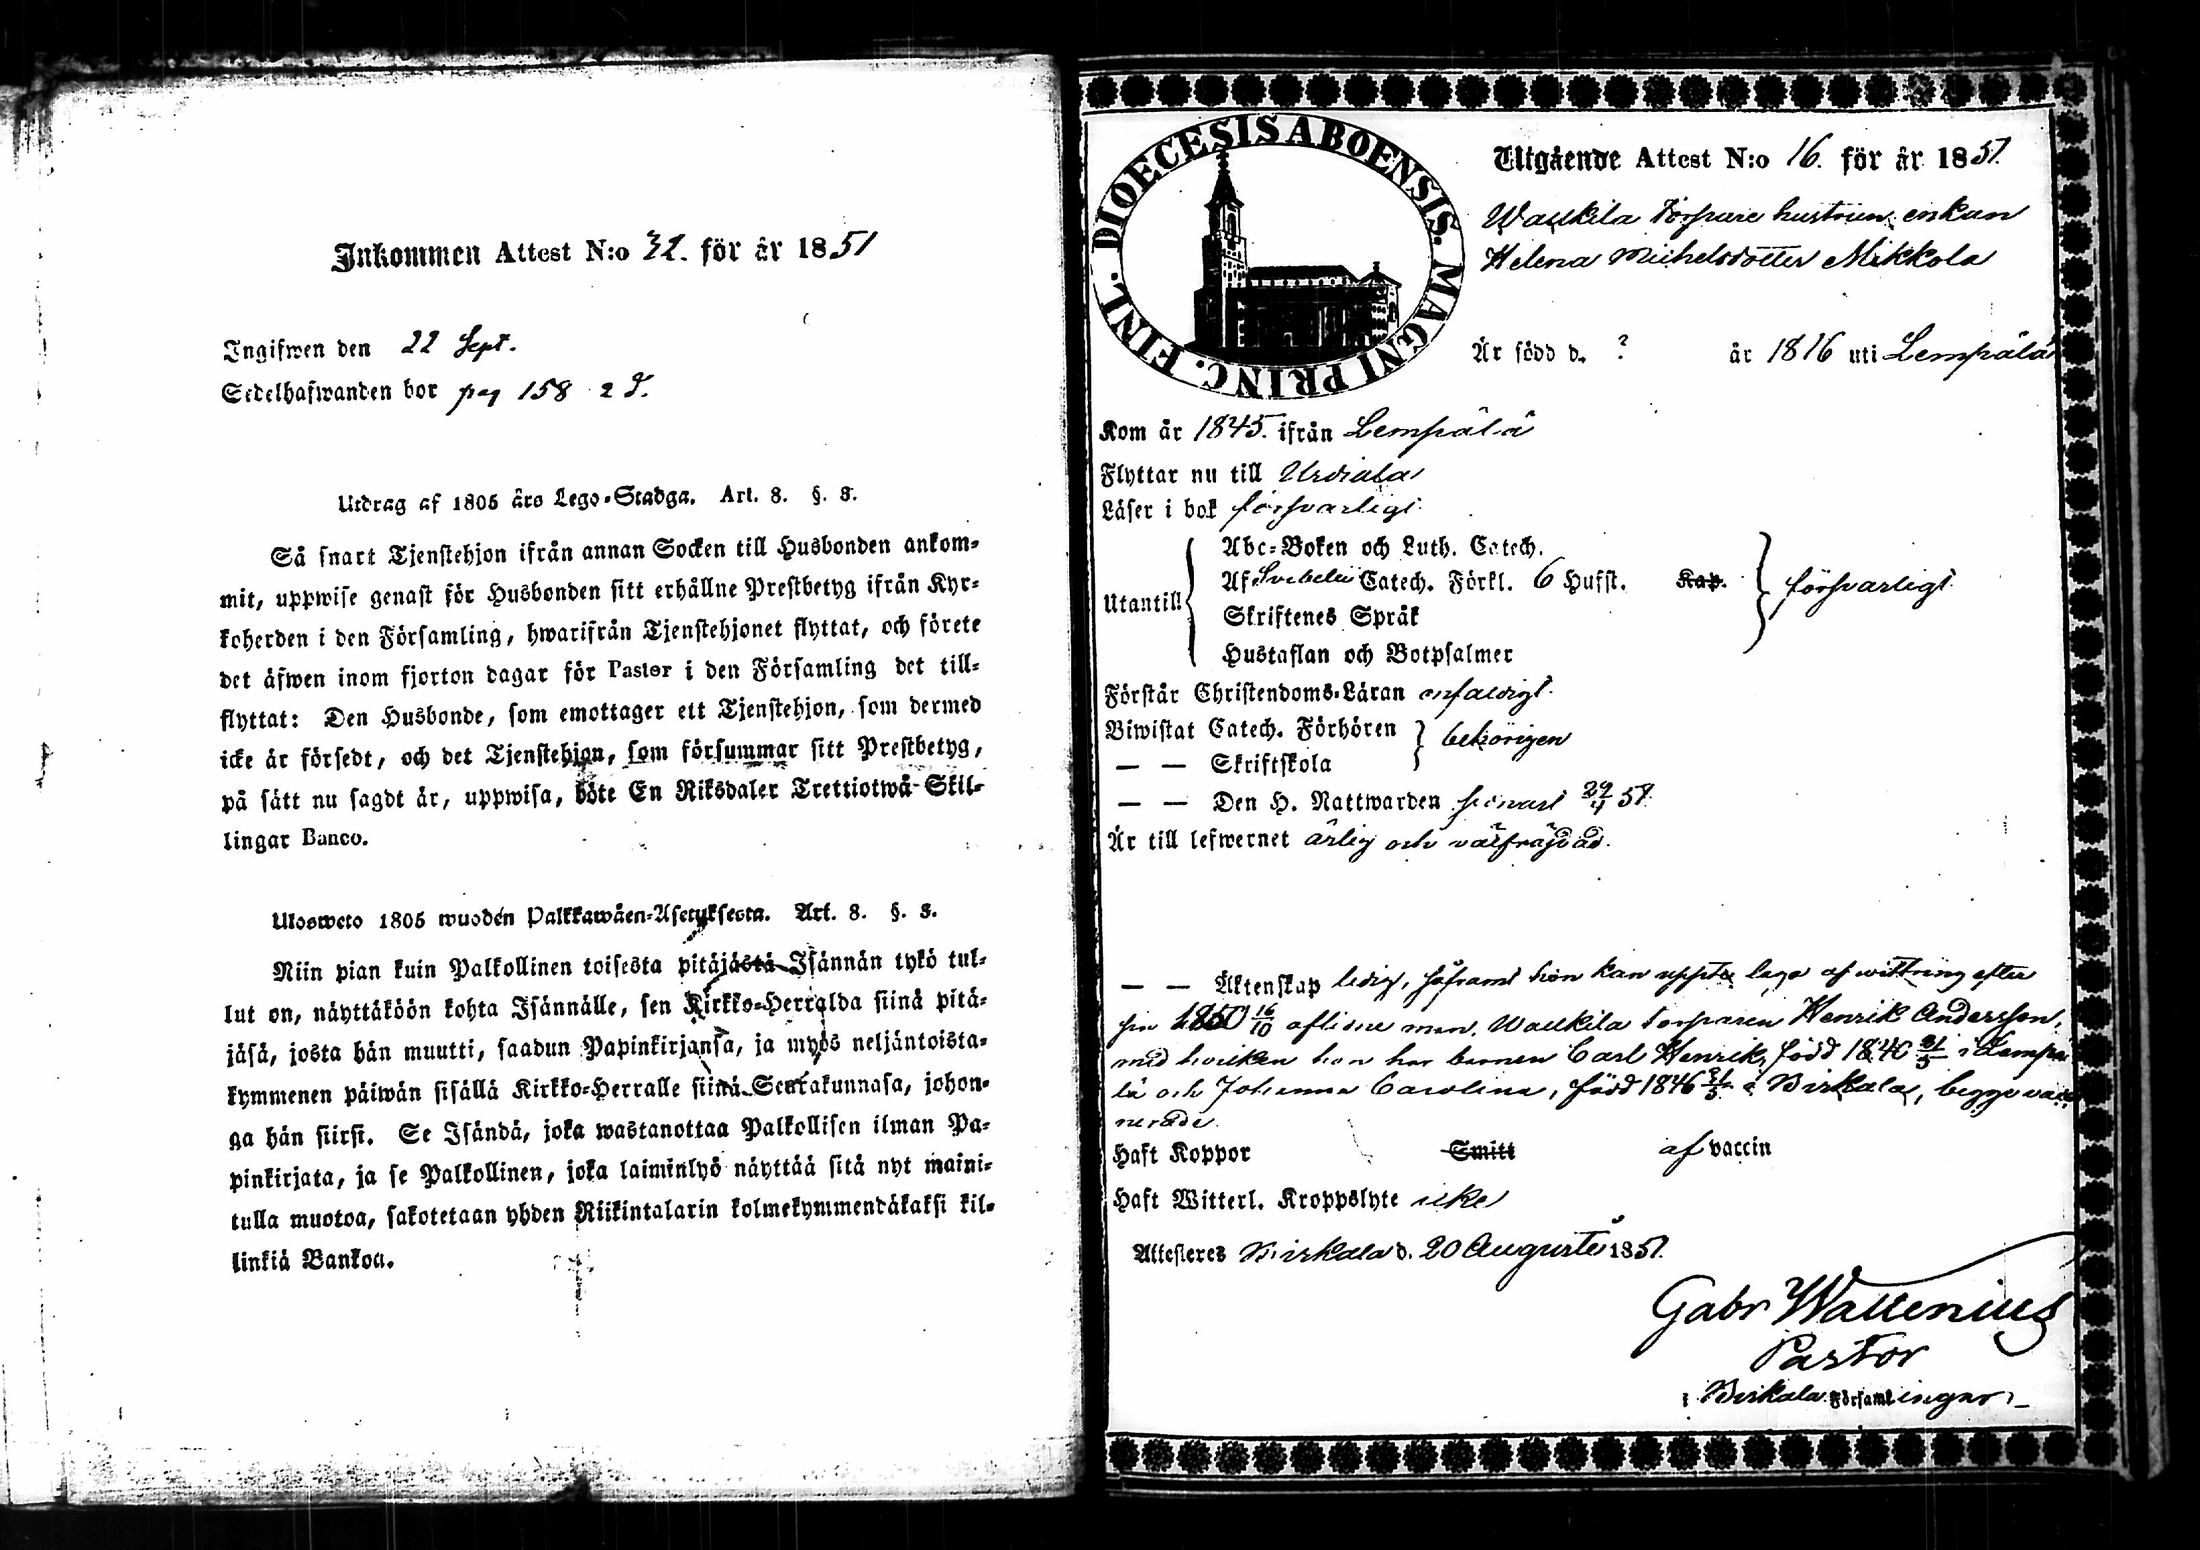 Inkommen Attest N:o 32. för år 1851
Ingifwen den 22 Sept.
Sedelhafwanden bor pag 158 2 d.
Utdrag af 1805 års Lego-Stadga. Art. 8. §. 3.
Så snart Tjenstehjon ifrån annan Socken till Husbonden ankom-
mit, uppwise genast för Husbonden sitt erhållne Prestbetyg ifrån Kyr-
koherden i den Församling, hwarifrån Tjenstehjonet flyttat, och förete
det äfwen inom fjorton dagar för Pastor i den Församling det till-
flyttat: Den Husbonde, som emottager ett Tjenstehjon, som dermed
icke är försedt, och det Tjenstehjon, som försummar sitt Prestbetyg,
på sätt nu sagdt är, uppwisa, böte En Riksdaler Trettiotwå Skil-
lingar Banco.
Ulosweto 1805 wuoden Palkkawäen-Asetuksesta. Art. 8. §. 3.
Niin pian kuin Palkollinen toisesta pitäjästä Isännän tykö tul-
lut on, näyttäköön kohta Isännälle, sen Kirkko-Herralda siinä pitä-
jäsä, josta hän muutti, saadun Papinkirjansa, ja myös neljäntoista-
kymmenen päiwän sisällä Kirkko-Herralle siinä Seurakunnasa, johon-
ga hän siirsi. Se Isändä, joka wastanottaa Palkollisen ilman Pa-
pinkirjata, ja se Palkollinen, joka laiminlyö näyttää sitä nyt maini-
tulla muotoa, sakotetaan yhden Riikintalarin kolmekymmendäkaksi kil-
linkiä Bankoa.
DIOECESIS ABOENSIS. MAGNI PRINC. FINL.
Utgående Attest N:o 16. för år 1851.
Waukila Torpare hustrun, enkan
Helena Michelsdotter Mikkola
Är född d. ? år 1816 uti Lempälä
Kom år 1845. ifrån Lempälä
Flyttar nu till Urdiala
Läser i bok försvarligt
Utantill
Abc-Boken och Luth. Catech.
Af Svebelii Catech. Förkl. 6 Hufst. Kap. försvarligt
Skriftenes Språk
Hustaflan och Botpsalmer
Förstår Christendoms-Läran enfaldigt
Biwistat Catech. Förhören behörigen
— — Skriftskola
— — Den H. Nattwarden senast 29/4 51.
Är till lefwernet ärlig och välfräjdad.
— — Äktenskap ledig, såframt hon kan uppte laga af wittring efter
sin 1850 16/10 aflidne man, Waukila torparen Henrik Andersson,
med hvilken hon har barnen Carl Henrik, född 1840 21/5 i Lempä
lä och Johanna Carolina, född 1846 21/5 i Birkala, begge vacci
nerade.
Haft Koppor Smitt af vaccin
Haft Witterl. Kroppslyte icke
Attesteres Birkala d. 20 Augusti 1851.
Gabr Wallenius
Pastor
i Birkala Församlingar